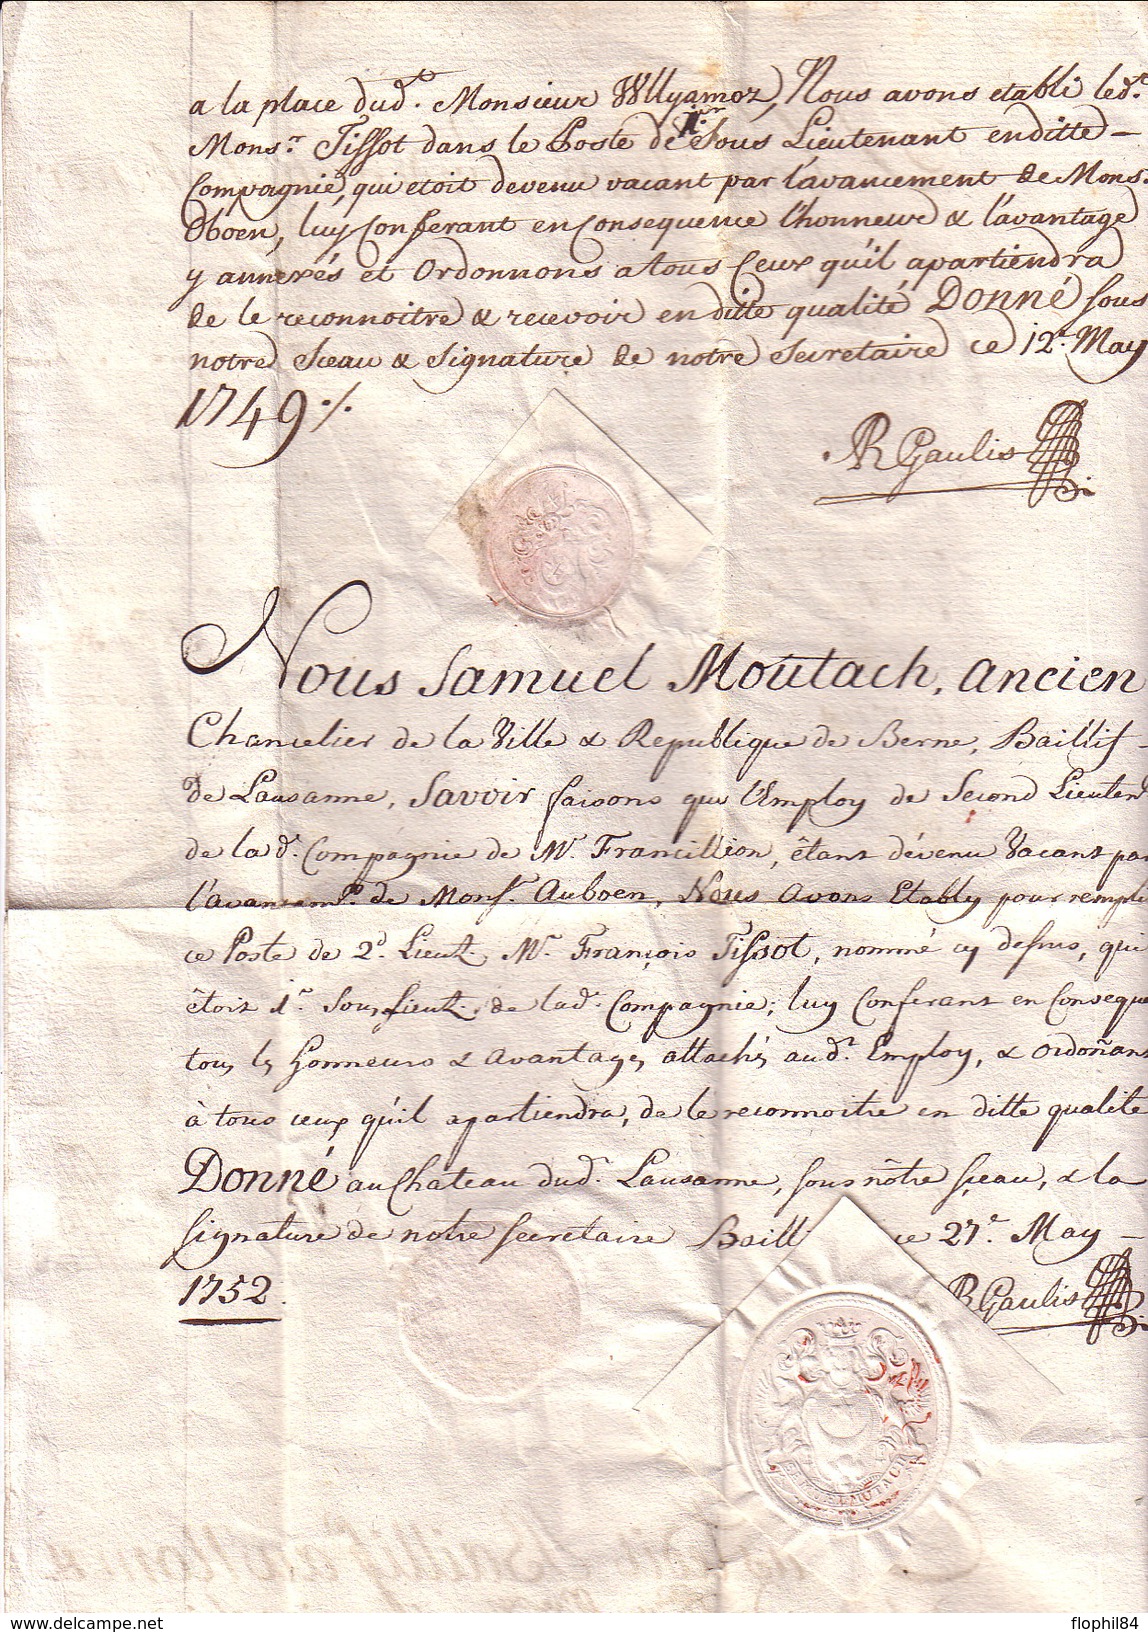 a la place dud.t Monsieur Wllyamoz, Nous avons etabli led.t
Mons.r Tissot dans le Poste de 1.er Sous Lieutenant enditte -
Compagnie, qui etoit devenu vacant par l'avancement de Mons.
Oboen, luy Conferant en Consequence l'honneur & l'avantage
y annexés et Ordonnons a tous Ceux qu'il apartiendra
de le reconnoitre & recevoir en ditte qualité Donné sous
notre Sceau & Signature de notre Secretaire ce 12.e May
1749 ./.
R Gaulis
Nous Samuel Moutach, ancien
Chancelier de la Ville & Republique de Berne, Baillif -
de Lausanne, Savoir faisons que l'Employ de Second Lieuten
de lad.e Compagnie de M.r Francillion, êtant dévenu Vacant par
l'avancem.t de Mons.r Auboen, Nous Avons Etably pour rempl
ce Poste de 2.d Lieut. M.r François Tissot, nommé cy dessus, qui
êtoit 1.r Sous Lieut. de lad.e Compagnie; luy Conferant en Conseque
tous les Honneurs & avantages attachés aud.t Employ, & ordoñans
à tous ceux qu'il apartiendra, de le reconnoitre en ditte qualité
Donné au Château dud.t Lausanne, sous nôtre sçeau, & la
signature de notre secretaire Bailli ce 27.e May -
1752.
R Gaulis
SAMUEL MUTACH
www.delcampe.net
flophil84